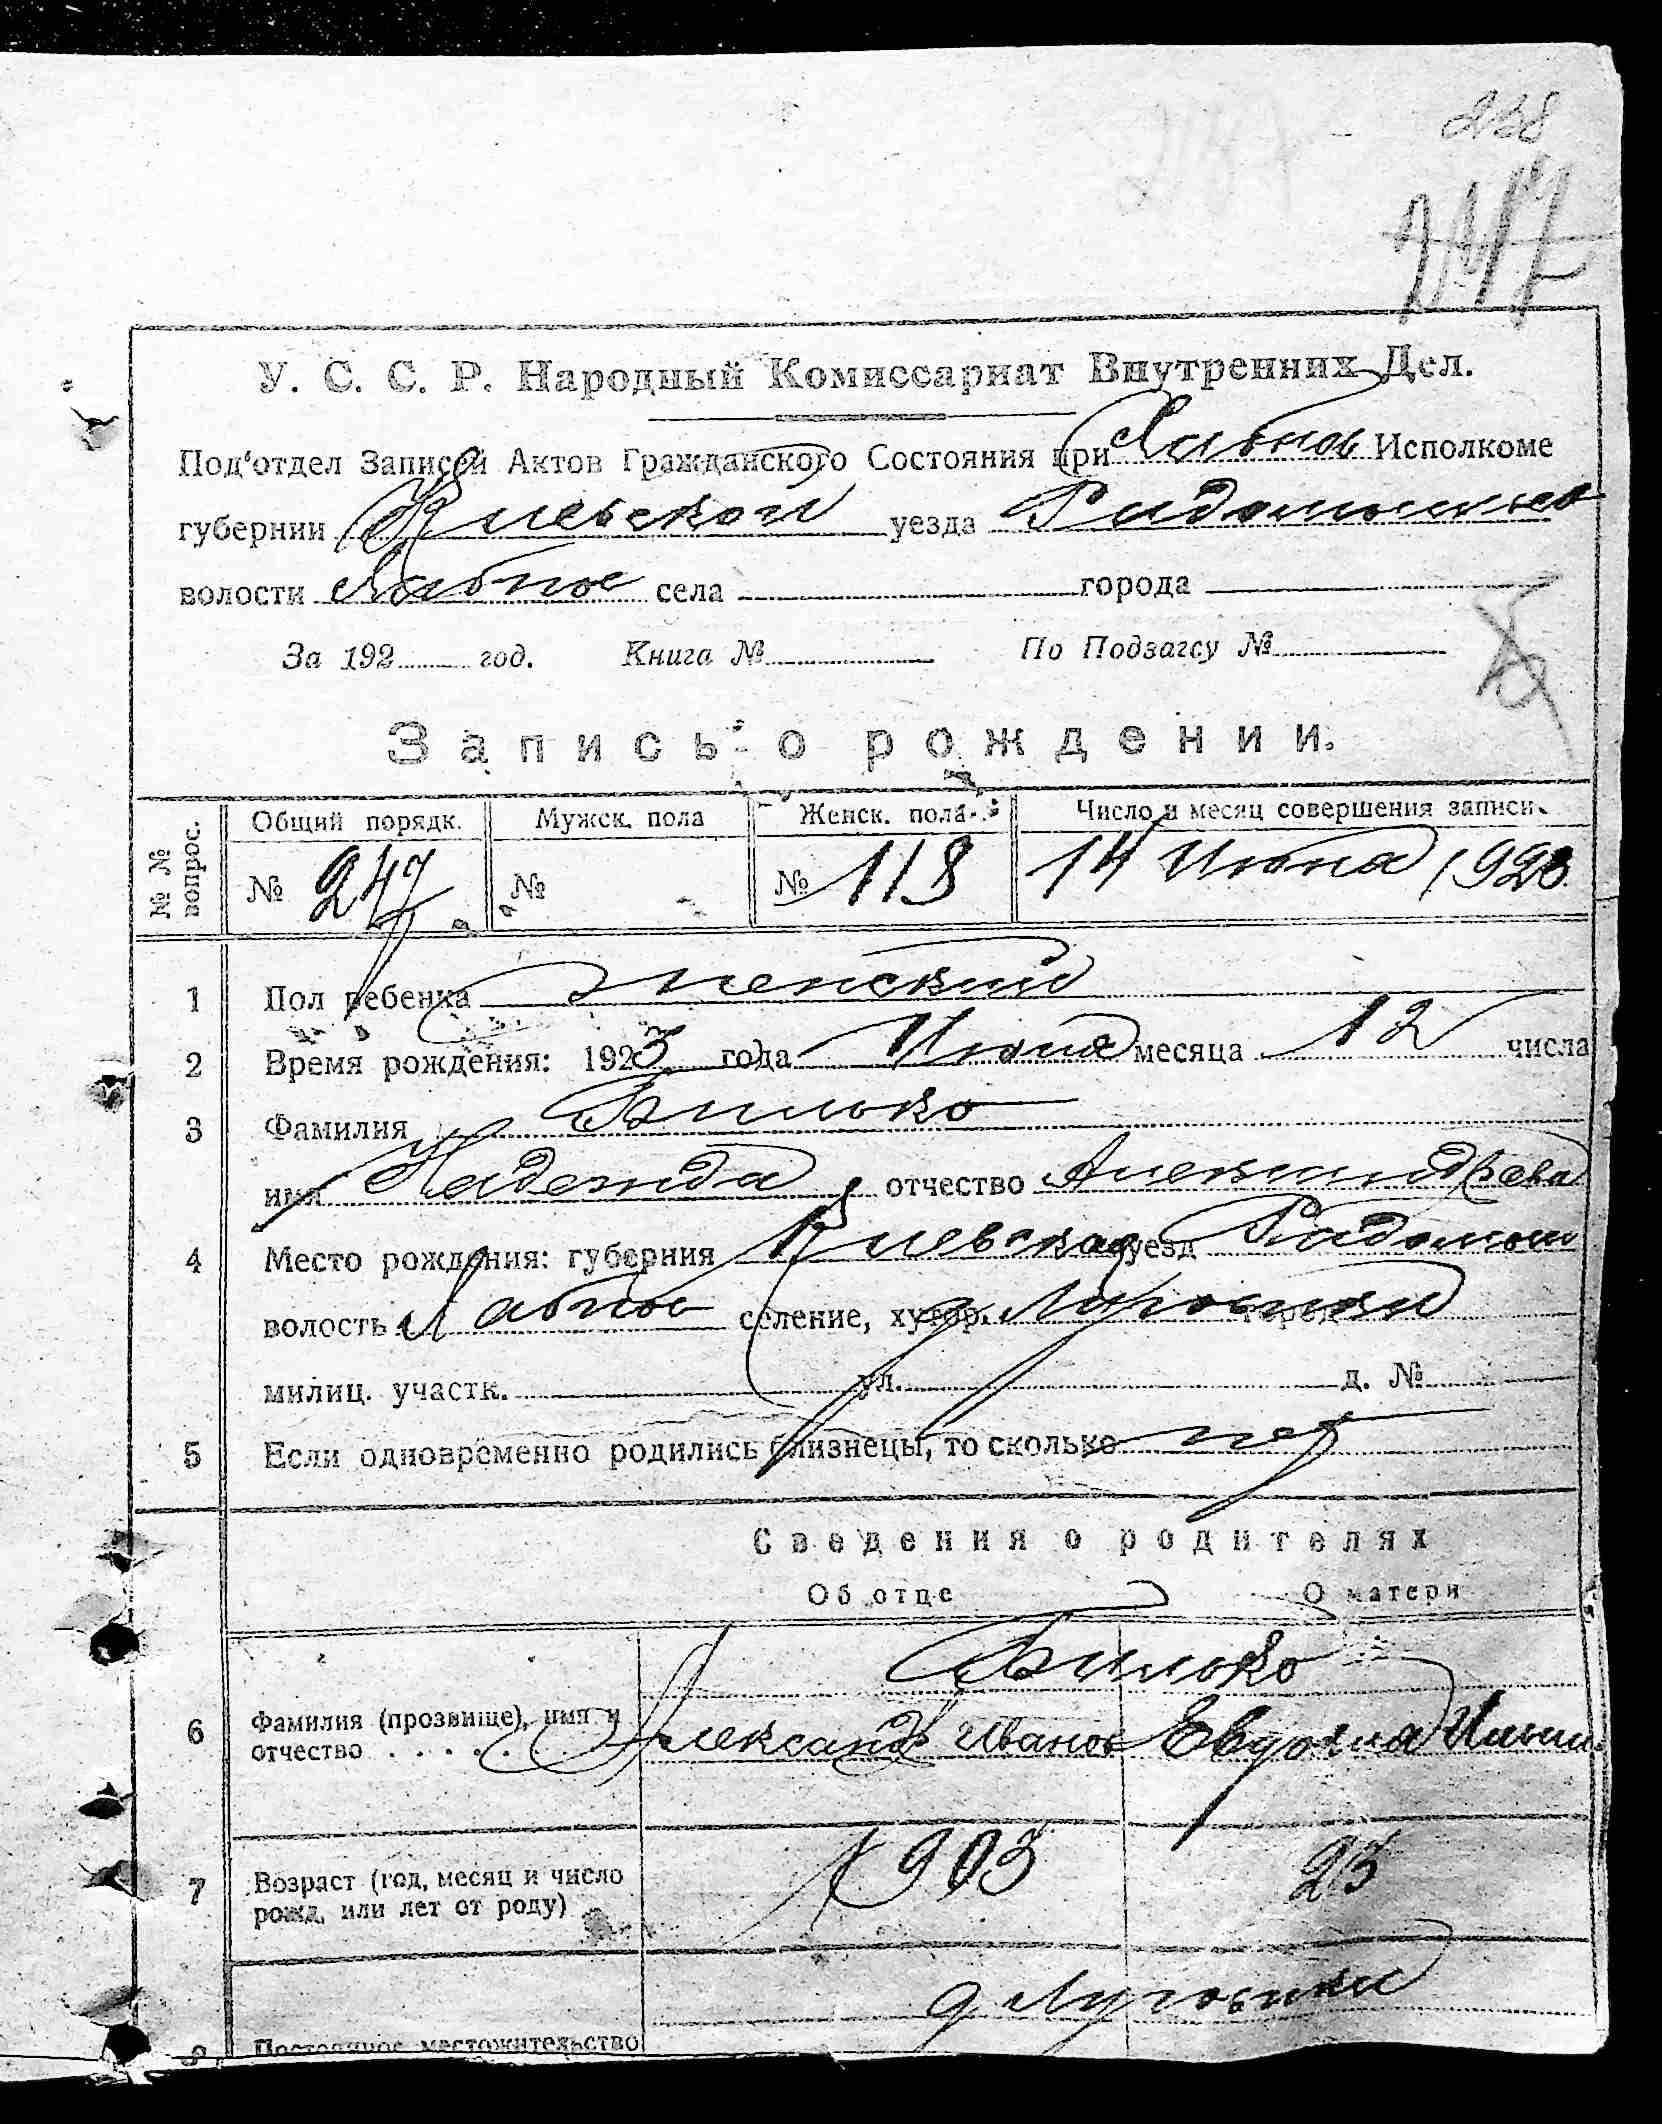 238
247
У. С. С. Р. Народный Комиссариат Внутренних Дел.
Под'отдел Записей Актов Гражданского Состояния при Хабное Исполкоме
губернии Киевской уезда Радомысльск
волости Хабное села города
За 192 год. Книга № По Подзагсу №
Запись о рождении.
№ № вопрос. Общий порядк. Мужск. пола Женск. пола Число и месяц совершения записи
№ 247 № № 118 14 Июня 1923
1 Пол ребенка женский
2 Время рождения: 1923 года Июня месяца 12 числа
3 Фамилия Билько
имя Надежда отчество Александрова
4 Место рождения: губерния Киевская уезд Радомысл
волость Хабное селение, хутор, город д Луговики
милиц. участк. ул. д. №
5 Если одновременно родились близнецы, то сколько нет
Сведения о родителях
Об отце О матери
Билько
6 Фамилия (прозвище), имя и отчество . . . . . Александр Иванов Евдокия Ильин
7 Возраст (год, месяц и число рожд. или лет от роду) 1903 23
д Луговики
8 Постоянное местожительство